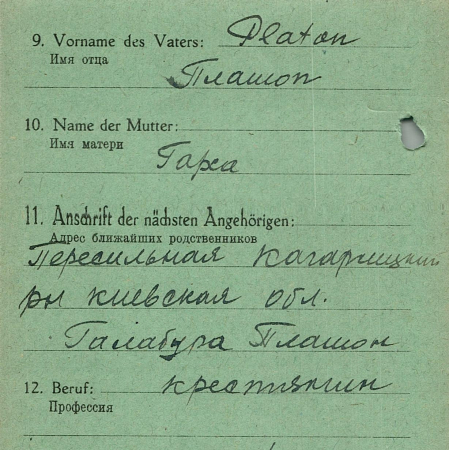 9. Vorname des Vaters: Platon
Имя отца
Платон
10. Name der Mutter:
Имя матери
11. Anschrift der nächsten Angehörigen:
Адрес ближайших родственников
Кагарлицкий
ры киевская обл.
Галабура Платон
12. Beruf: крестиянин
Профессия